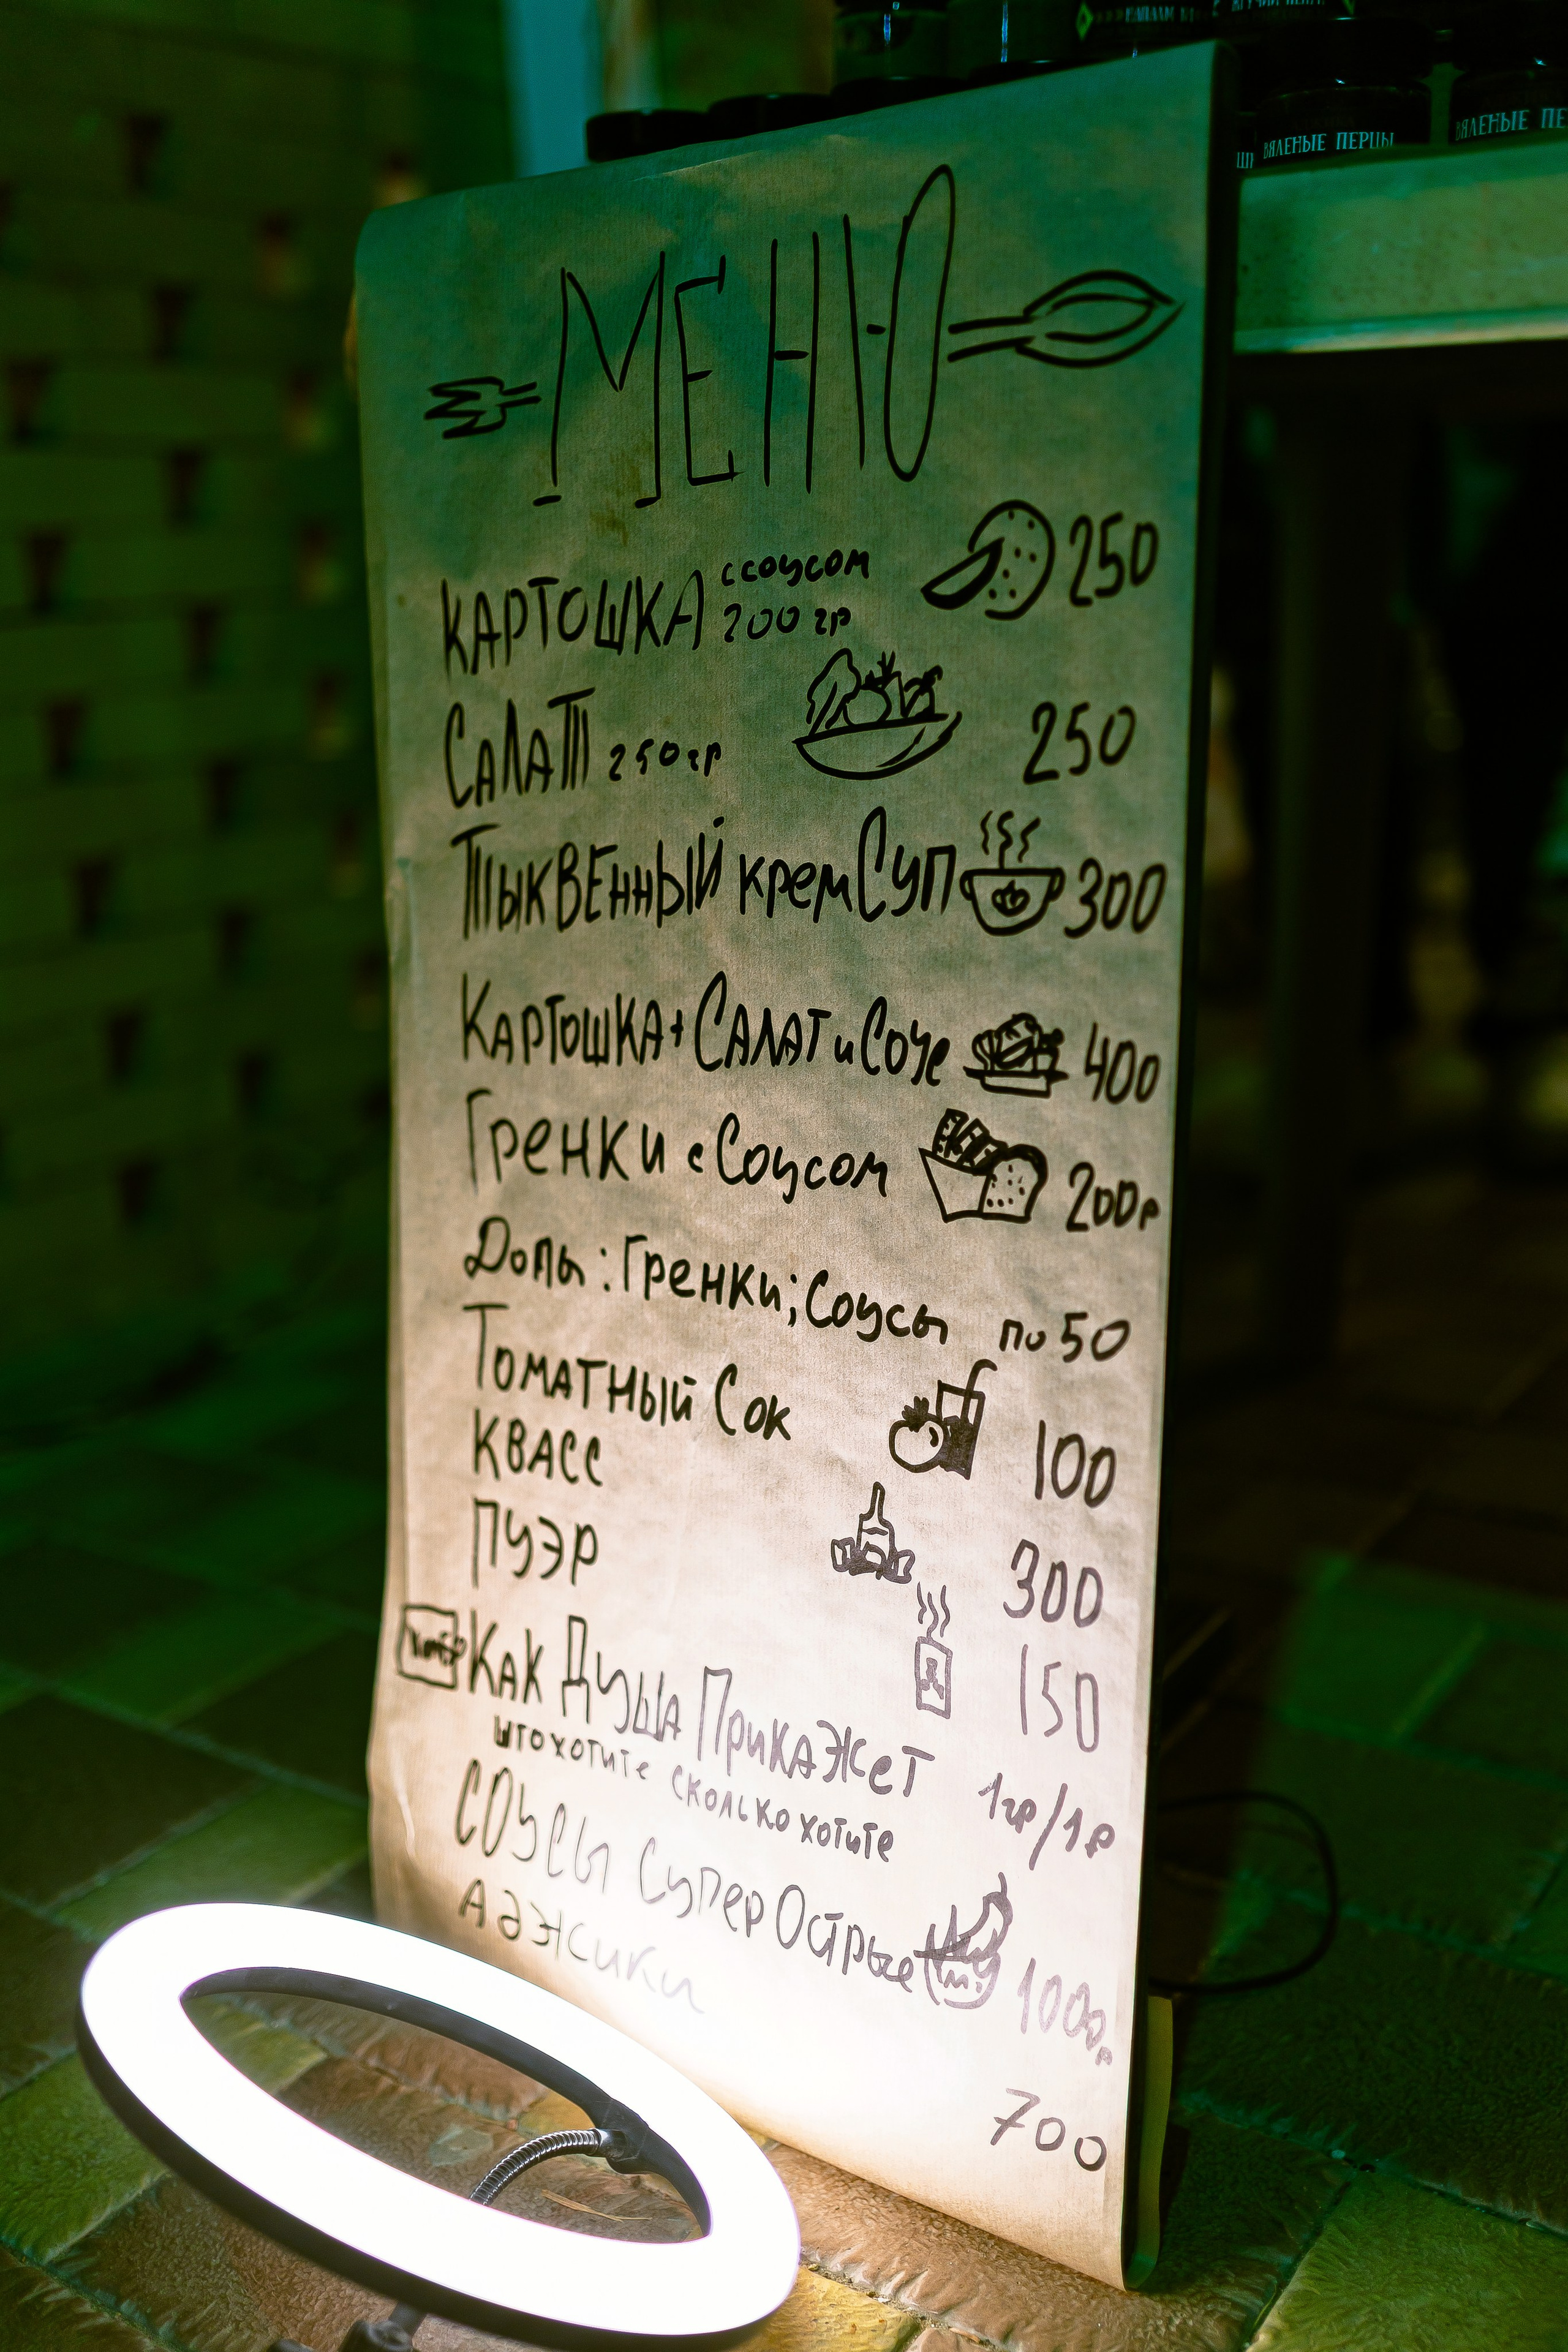 ВЯЛЕНЫЕ ПЕРЦЫ
ВЯЛЕНЫЕ ПЕ
МЕНЮ
КАРТОШКА с соусом 200 гр 250
САЛАТ 250 гр 250
ТЫКВЕННЫЙ крем Суп 300
КАРТОШКА + САЛАТ и Соус 400
Гренки с Соусом 200р
Допы: Гренки; Соусы по 50
Томатный Сок 100
КВАСС 300
ПУЭР 150
Как Душа Прикажет 1гр/1р
што хотите сколько хотите
СОУСЫ Супер Острые 1000р
Аджики 700